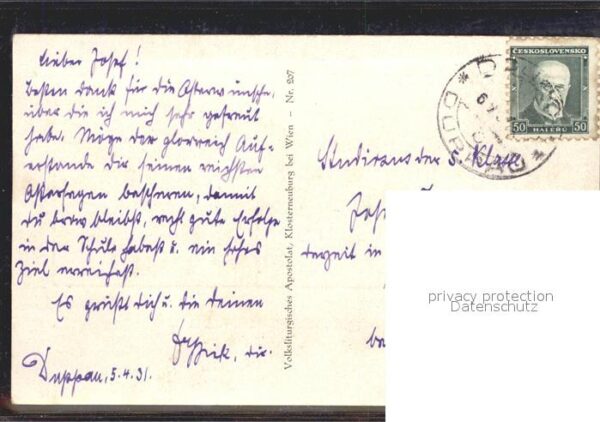 Lieber Josef!
Besten Dank für die Osterwünsche,
über die ich mich sehr gefreut
habe. Möge der glorreich Auf-
erstandene dir seinen reichsten
Ostersegen bescheren, damit
du brav bleibst, recht gute Erfolge
in der Schule habest u. ein hohes
Ziel erreichest.
Es grüßt dich u. die deinen
Duppau, 5.4.31.
Volksliturgisches Apostolat, Klosterneuburg bei Wien – Nr. 267
ČESKOSLOVENSKO
50 HALÉŘŮ 50
DOUPOV
DUPPAU
Studiosus der 5. Klasse
Jose
derzeit in
privacy protection
Datenschutz